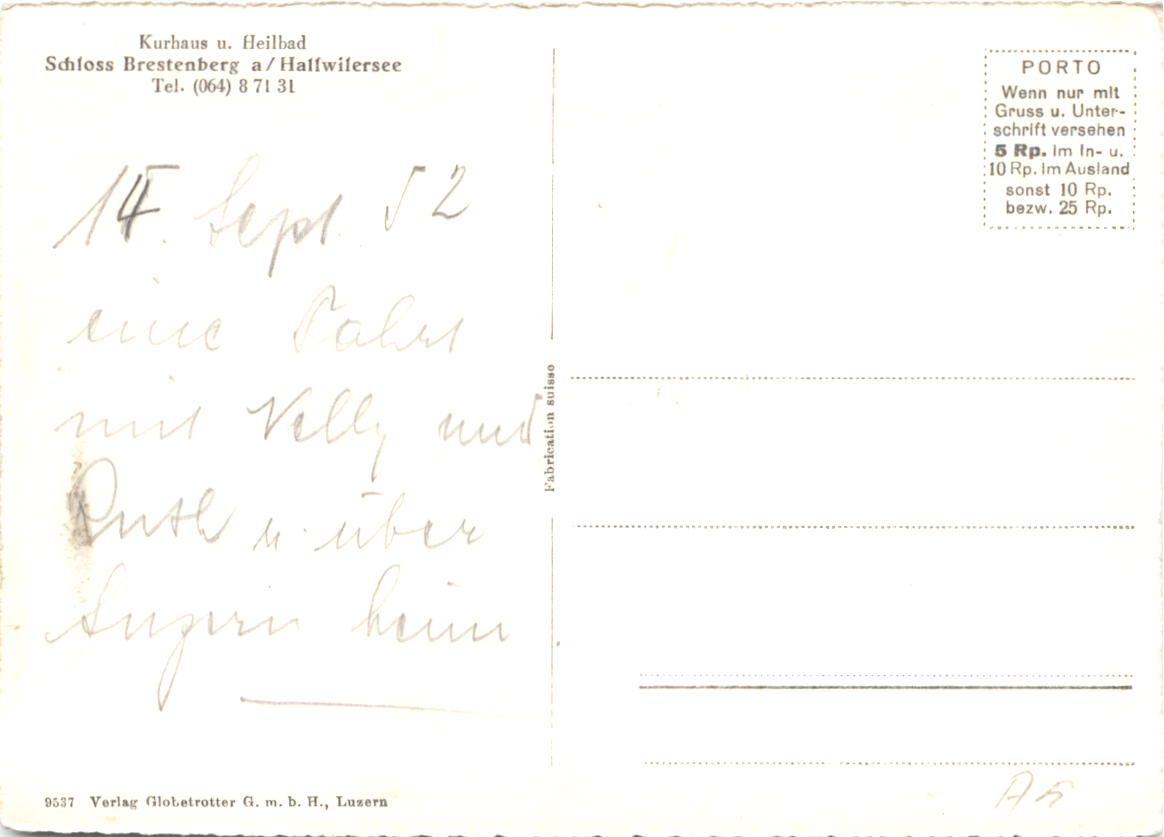 Kurhaus u. Heilbad
Schloss Brestenberg a/Hallwilersee
Tel. (064) 8 71 31
14. Sept. 52
eine Fahrt
mit Nelly und
Ruth u. über
Luzern heim
Fabrication suisse
PORTO
Wenn nur mit
Gruss u. Unter-
schrift versehen
5 Rp. im In- u.
10 Rp. im Ausland
sonst 10 Rp.
bezw. 25 Rp.
9537 Verlag Globetrotter G. m. b. H., Luzern